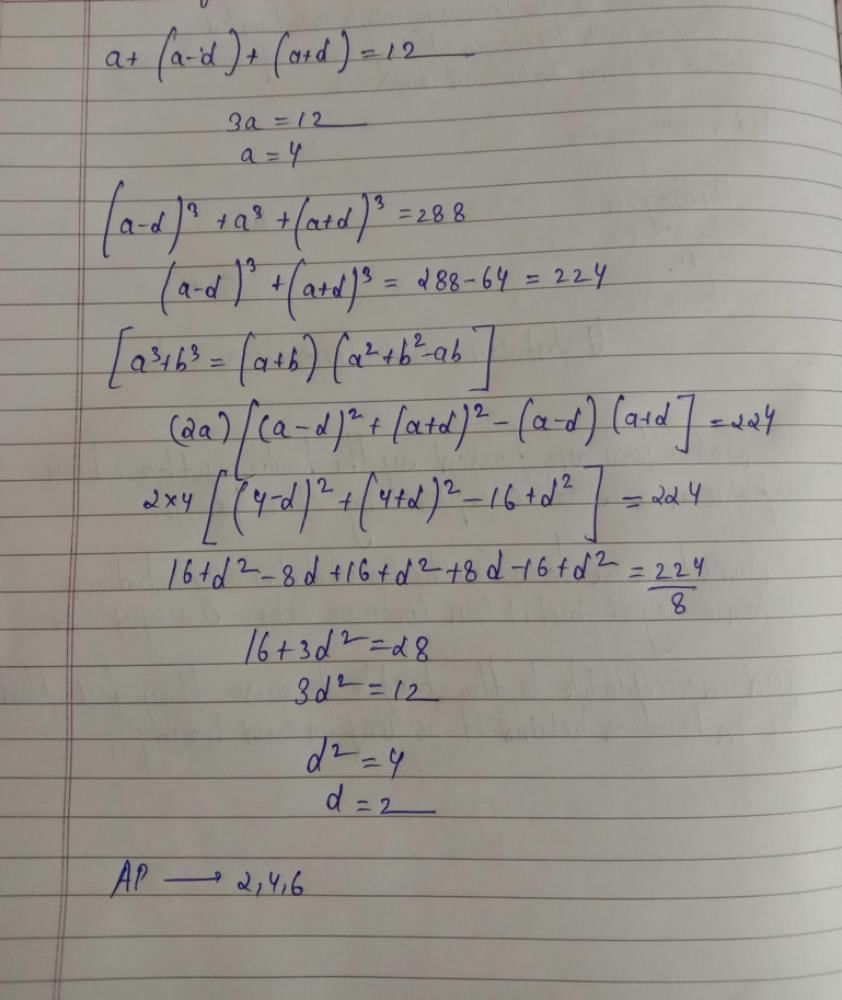 a+ (a-d) + (a+d) = 12
3a = 12
a = 4
(a-d)³ + a³ + (a+d)³ = 288
(a-d)³ + (a+d)³ = 288-64 = 224
[a³+b³ = (a+b) (a²+b²-ab]
(2a) [(a-d)² + (a+d)² - (a-d) (a+d] = 224
2×4 [(4-d)² + (4+d)² - 16 + d²] = 224
16+d²-8d+16+d²+8d-16+d² = 224/8
16+3d² = 28
3d² = 12
d² = 4
d = 2
AP → 2,4,6